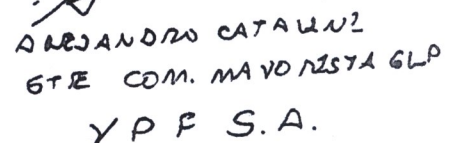 ALEJANDRO CATALINI
GTE COM. MAYORISTA GLP
YPF S.A.